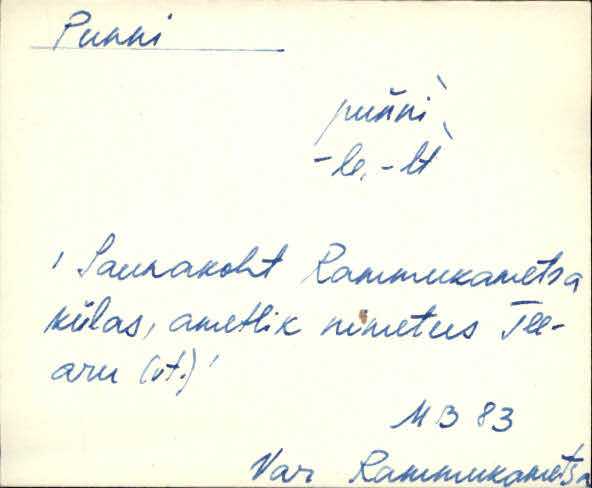 Punni
puǹni`,
-le, -lt`
' Saunakoht Rammukametsa
külas, ametlik nimetus Tee-
aru (vt.)'
MB 83
Var Rammukametsa